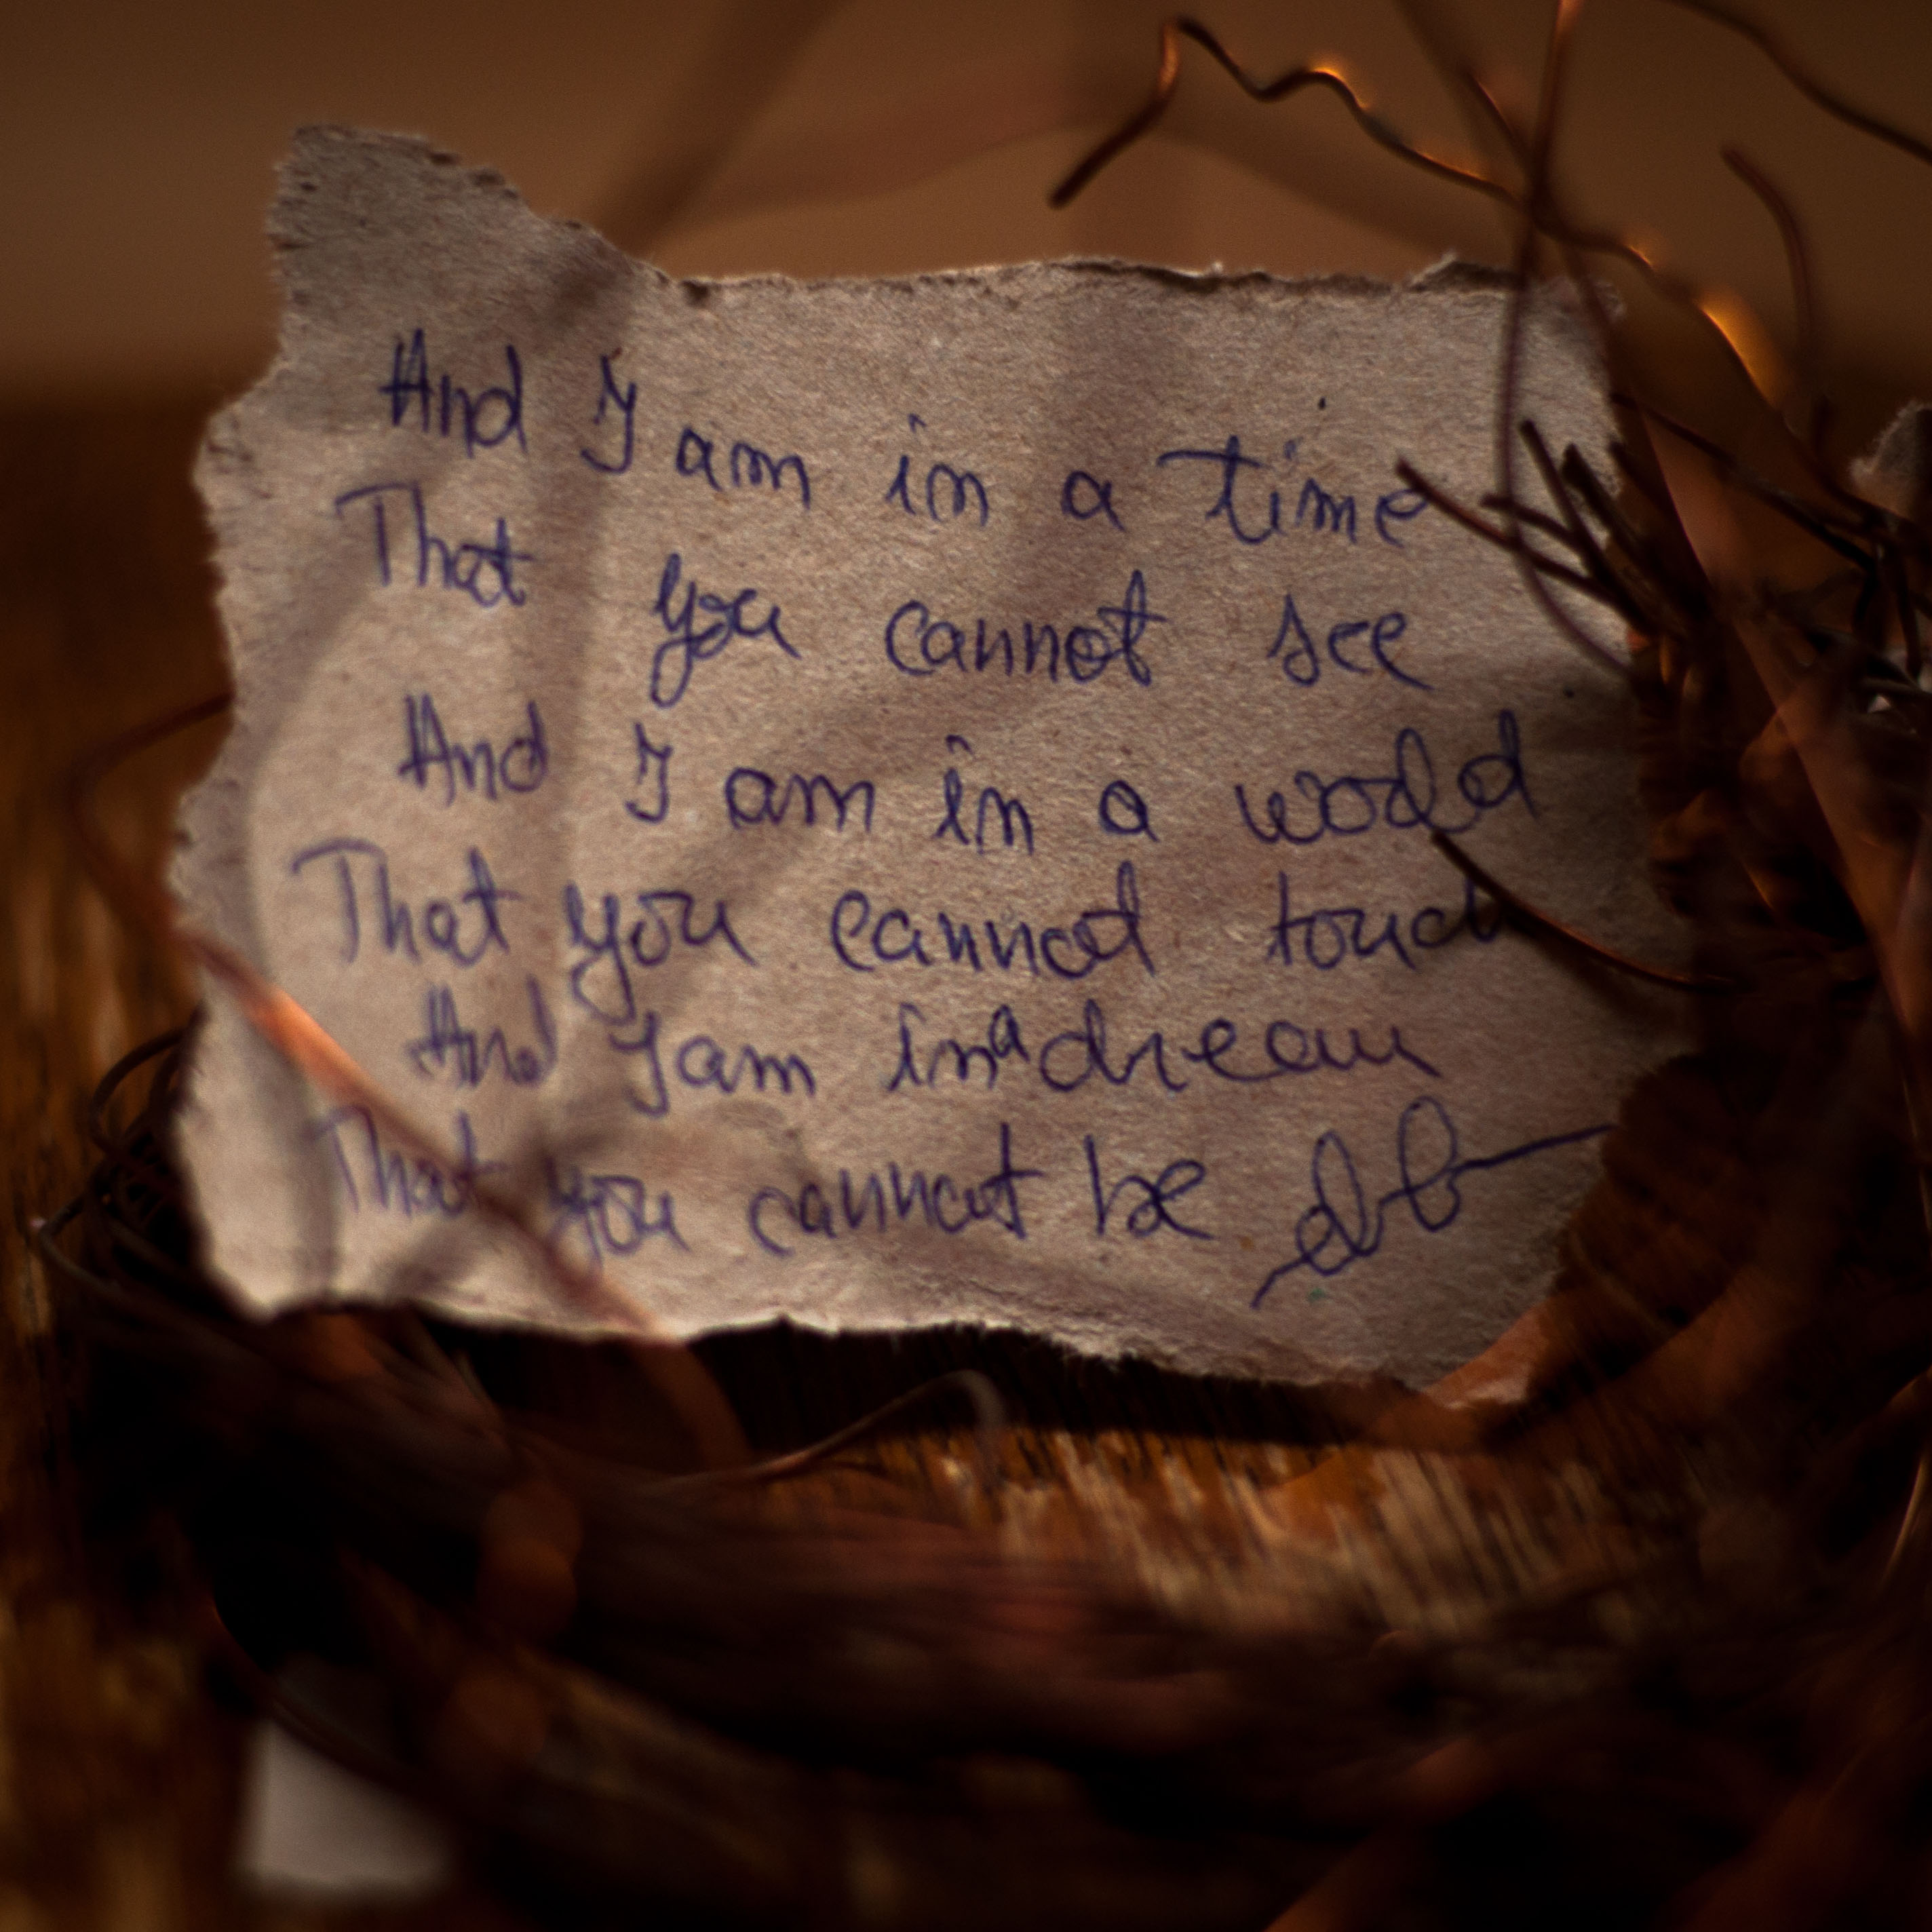 And I am in a time
That you cannot see
And I am in a world
That you cannot touch
And I am in a dream
That you cannot be